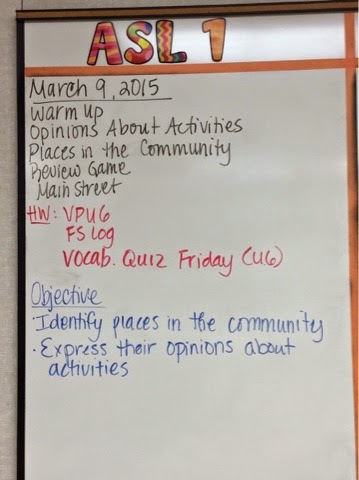 ASL 1
March 9, 2015
Warm Up
Opinions About Activities
Places in the Community
Review Game
Main Street
HW: VPU6
FS log
Vocab. Quiz Friday (U6)
Objective
·Identify places in the community
·Express their opinions about
activities